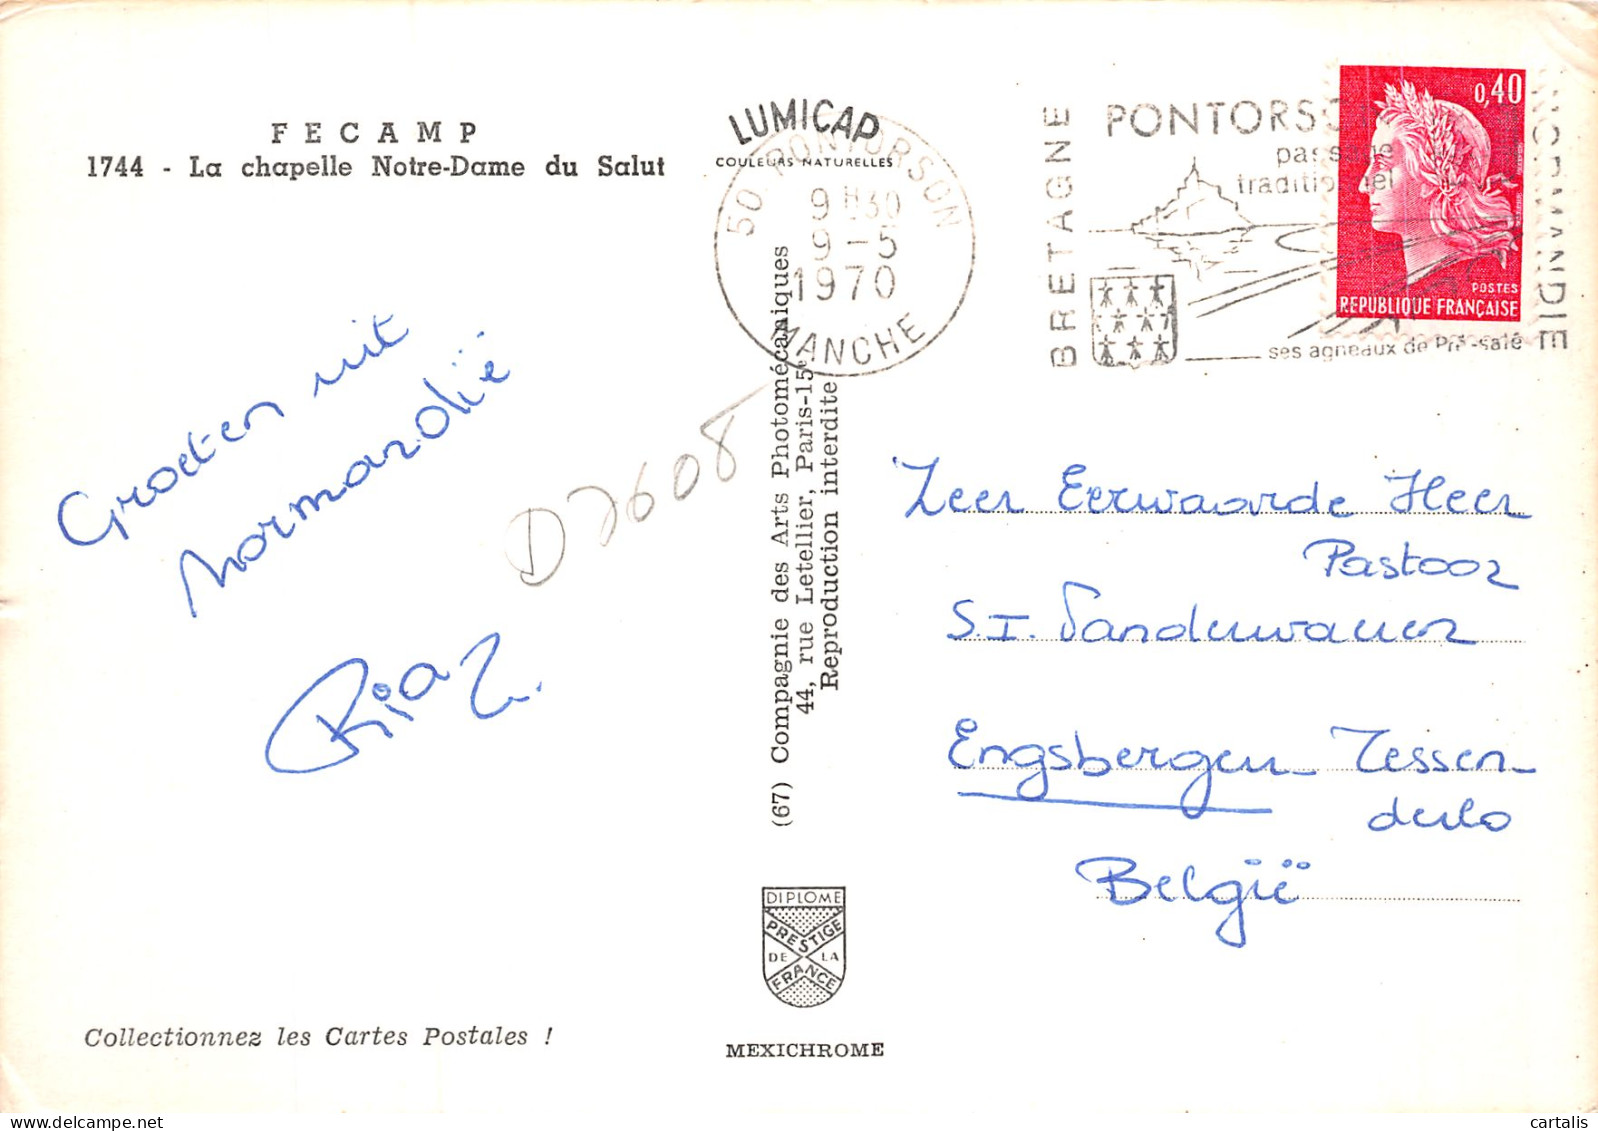 FECAMP
1744 - La chapelle Notre-Dame du Salut
LUMICAP
COULEURS NATURELLES
50 PONTORSON
9H30
9-5
1970
MANCHE
BRETAGNE
PONTORSON
passage
traditionnel
NORMANDIE
ses agneaux de Pré-salé
0,40
POSTES
REPUBLIQUE FRANÇAISE
Groeten uit
Normandië
Ria
D7608
(67) Compagnie des Arts Photomécaniques
44, rue Letellier, Paris-15e
Reproduction interdite
Zeer Eerwaarde Heer
Pastoor
S.T. Vandewauwer
Engsbergen Tessen-
derlo
België
DIPLOME
PRESTIGE
DE LA
FRANCE
MEXICHROME
Collectionnez les Cartes Postales !
cartalis